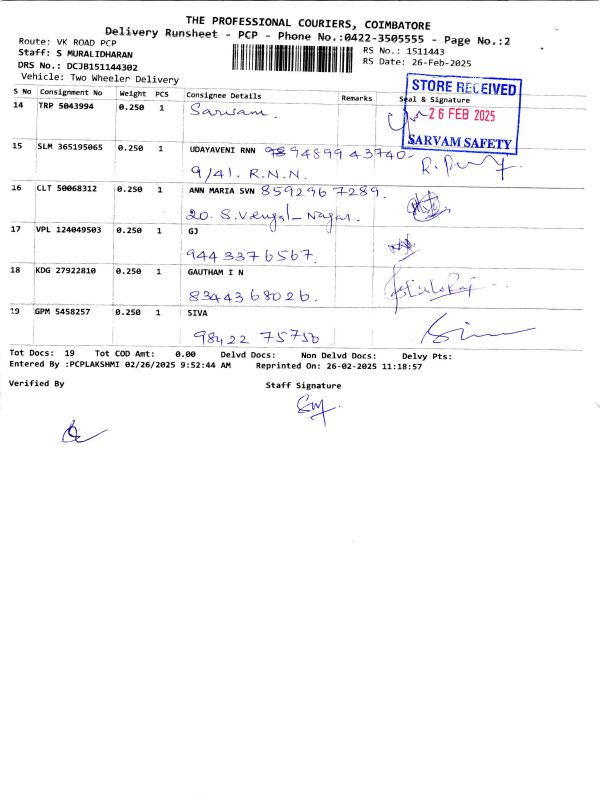 THE PROFESSIONAL COURIERS, COIMBATORE
Delivery Runsheet - PCP - Phone No.:0422-3505555 - Page No.:2
Route: VK ROAD PCP
Staff: S MURALIDHARAN
DRS No.: DCJB151144302
Vehicle: Two Wheeler Delivery
RS No.: 1511443
RS Date: 26-Feb-2025
STORE RECEIVED
26 FEB 2025
SARVAM SAFETY
S No Consignment No Weight PCS Consignee Details Remarks Seal & Signature
14 TRP 5043994 0.250 1 Sarvam.
15 SLM 365195065 0.250 1 UDAYAVENI RNN 9894899 43740-
9/41. R.N.N.
16 CLT 50068312 0.250 1 ANN MARIA SVN 859296 7289.
20. S.Vengal Nagar.
17 VPL 124049503 0.250 1 GJ
944 3376567.
18 KDG 27922810 0.250 1 GAUTHAM I N
8344368026.
19 GPM 5458257 0.250 1 SIVA
98422 75750
Tot Docs: 19 Tot COD Amt: 0.00 Delvd Docs: Non Delvd Docs: Delvy Pts:
Entered By :PCPLAKSHMI 02/26/2025 9:52:44 AM Reprinted On: 26-02-2025 11:18:57
Verified By Staff Signature